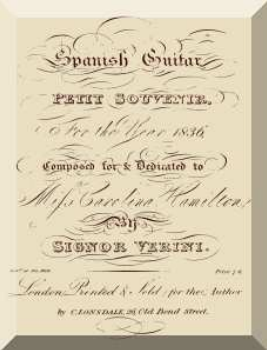 Spanish Guitar
PETIT SOUVENIR,
For the Year 1836,
Composed for & Dedicated to
Miſs Carolina Hamilton,
By
SIGNOR VERINI.
Price
London, Printed & Sold, for the Author
by C. LONSDALE, 26, Old Bond Street.